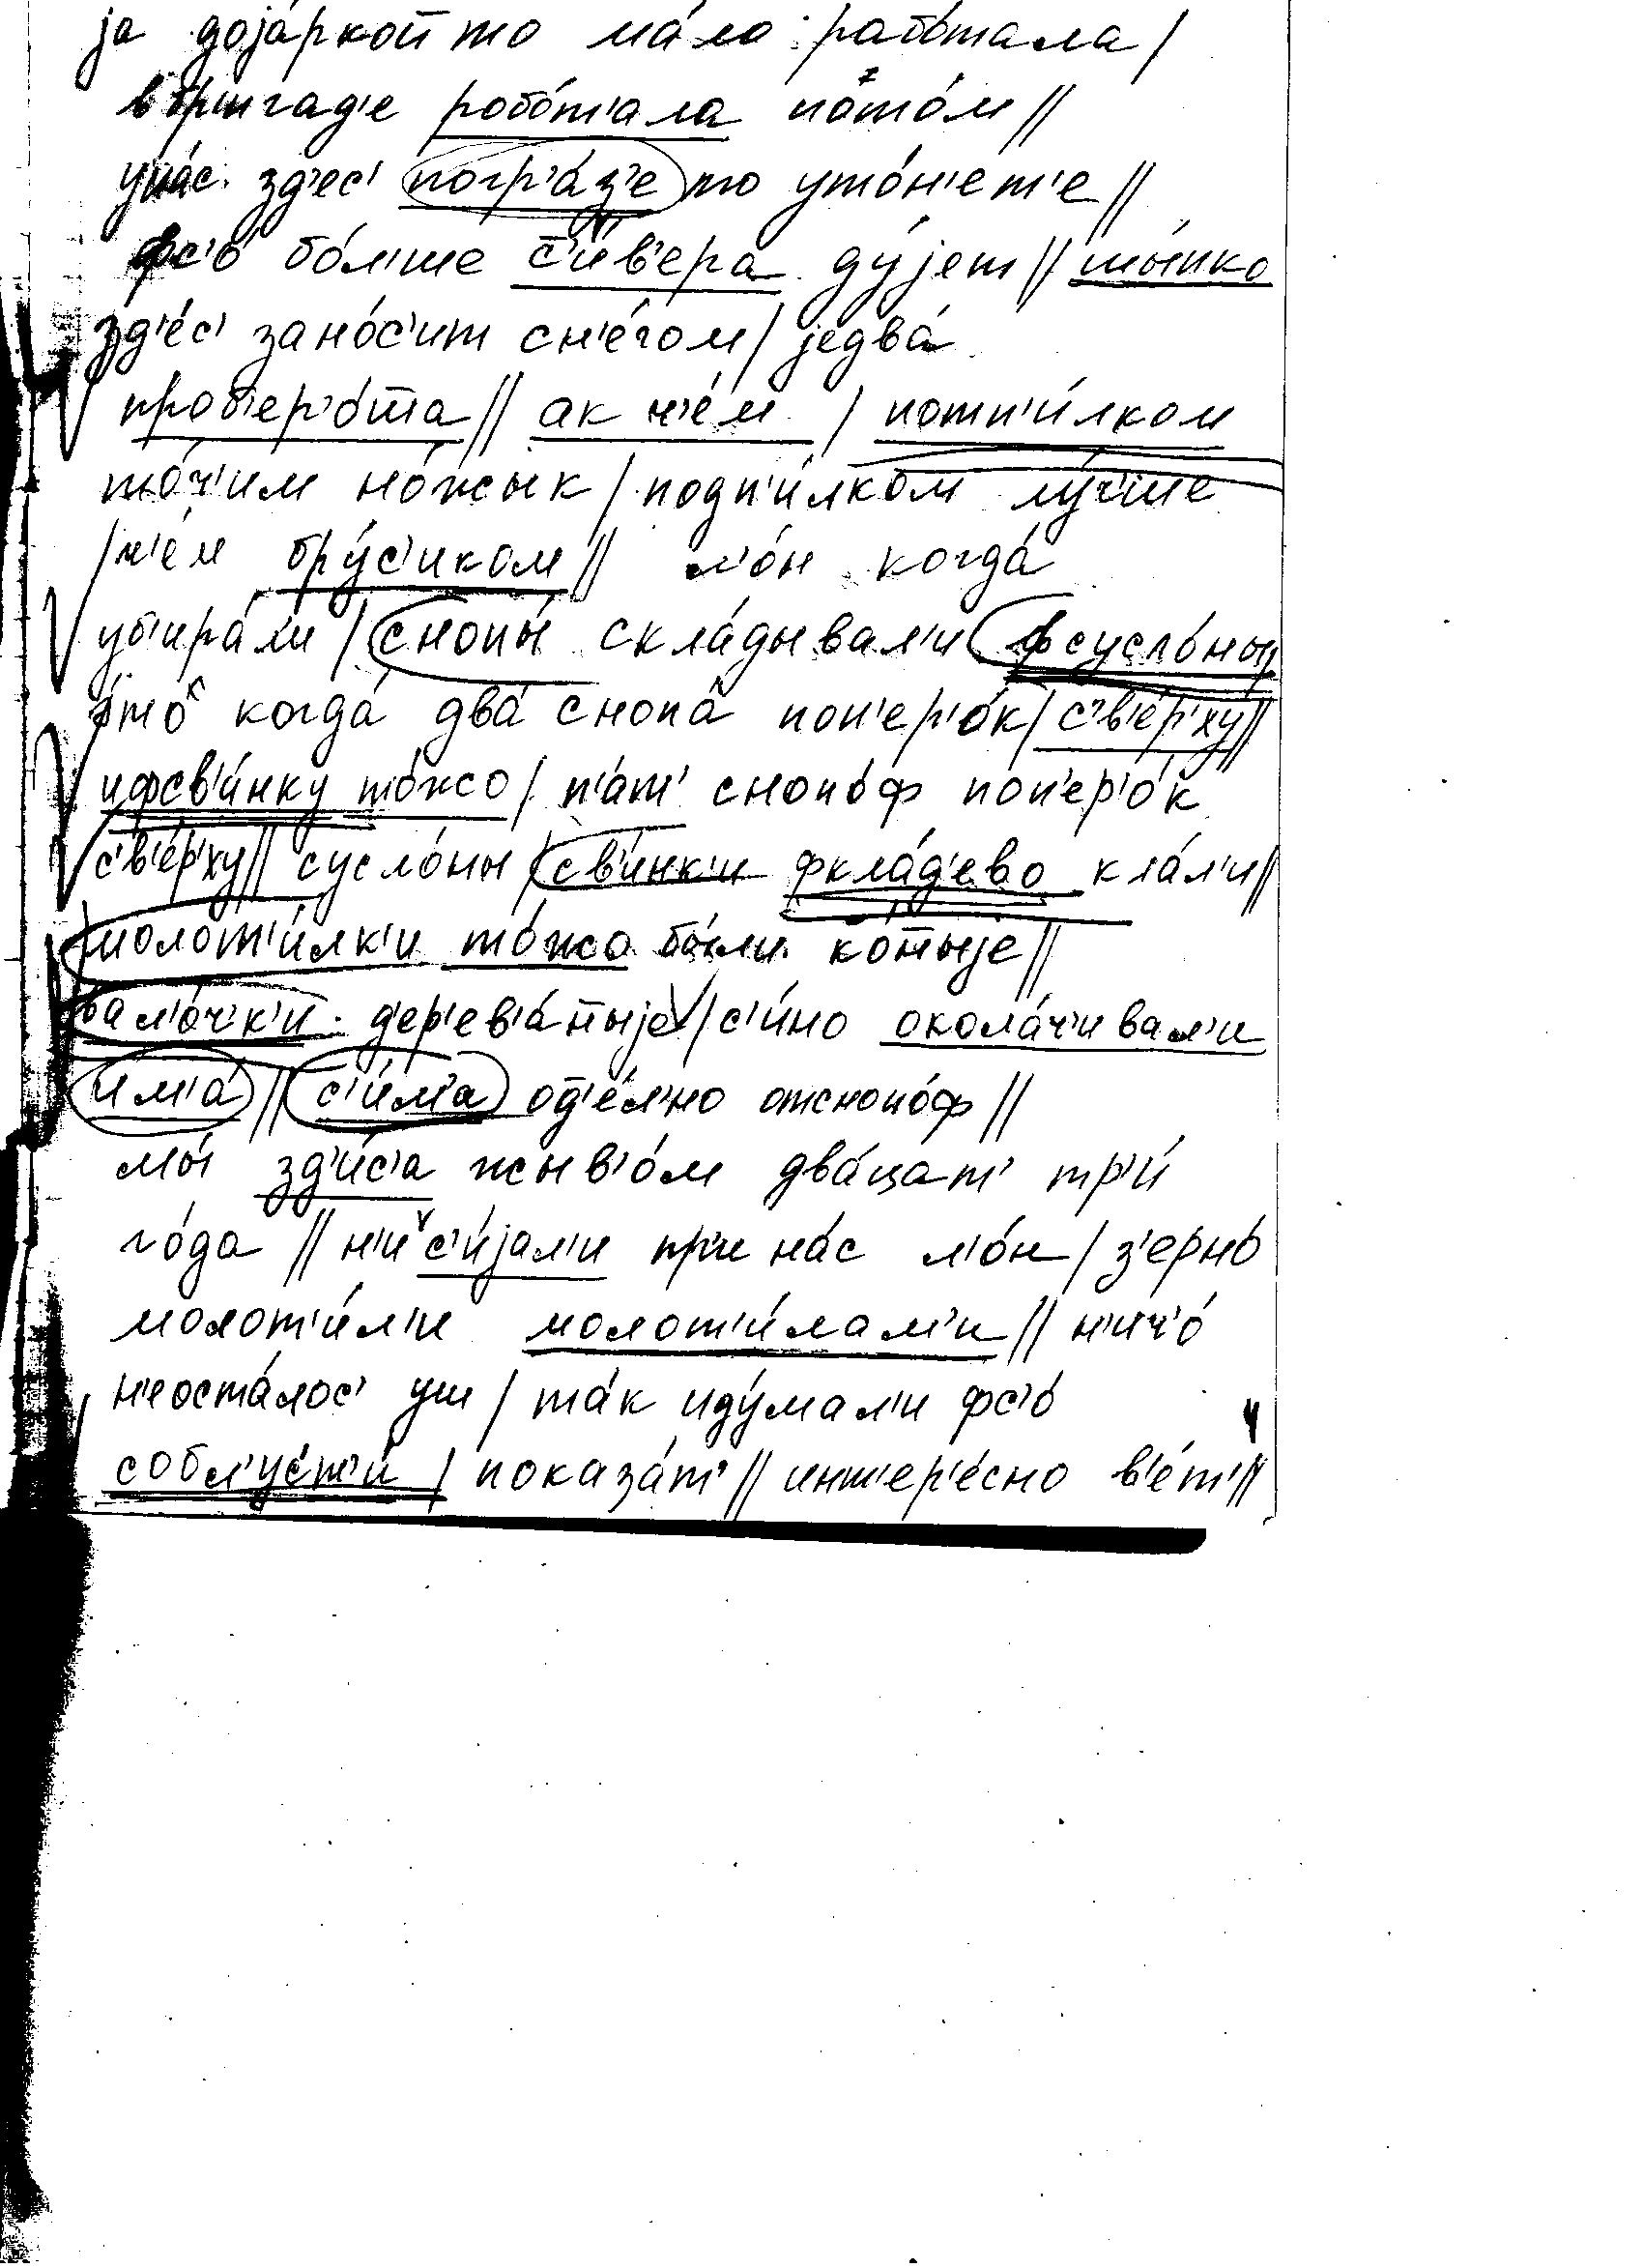 jа доjа́ркой то ма́ло рабо́тала /
в бр'игад'е робо́тала пото́м //
уна́с зд'ес' погр'а́з'е то уто́н'ет'е //
фс'о́ бо́л'ше с'и́в'ера ду́jет //
зд'е́с' зано́с'ит сн'е́гом / jедва́
проб'ер'о́тта // ак ч'е́м / потп'и́лком
то́ч'им но́жык / подп'и́лком лу́ч'ше
/ ч'е́м бру́с'иком // л'о́н когда́
уб'ира́л'и / снопы́ скла́дывал'и фсусло́ны
э́то когда́ два́ снопа́ поп'ер'о́к / с'в'е́р'ху //
ифсв'и́нку то́жо / п'а́т' снопо́ф поп'ер'о́к
с'в'е́р'ху // сусло́ны / св'и́нк'и фкла́д'ево кла́л'и //
молот'и́лк'и то́жо бы́ли ко́нныjе //
вал'о́ч'к'и д'ер'ев'а́нныjе / с'и́но окола́ч'ивал'и
им'а́ // с'и́м'а од'е́л'но отснопо́ф //
мы́ зд'и́с'а жыв'о́м два́цат' тр'и́
го́да // н'и с'и́jал'и пр'и на́с л'о́н / з'ерно́
молот'и́л'и молот'и́лам'и // н'ич'о́
н'еоста́лос' уш / та́к иду́мал'и фс'о́
собл'ус'т'и́ / показа́т' // инт'ер'е́сно в'е́т' //